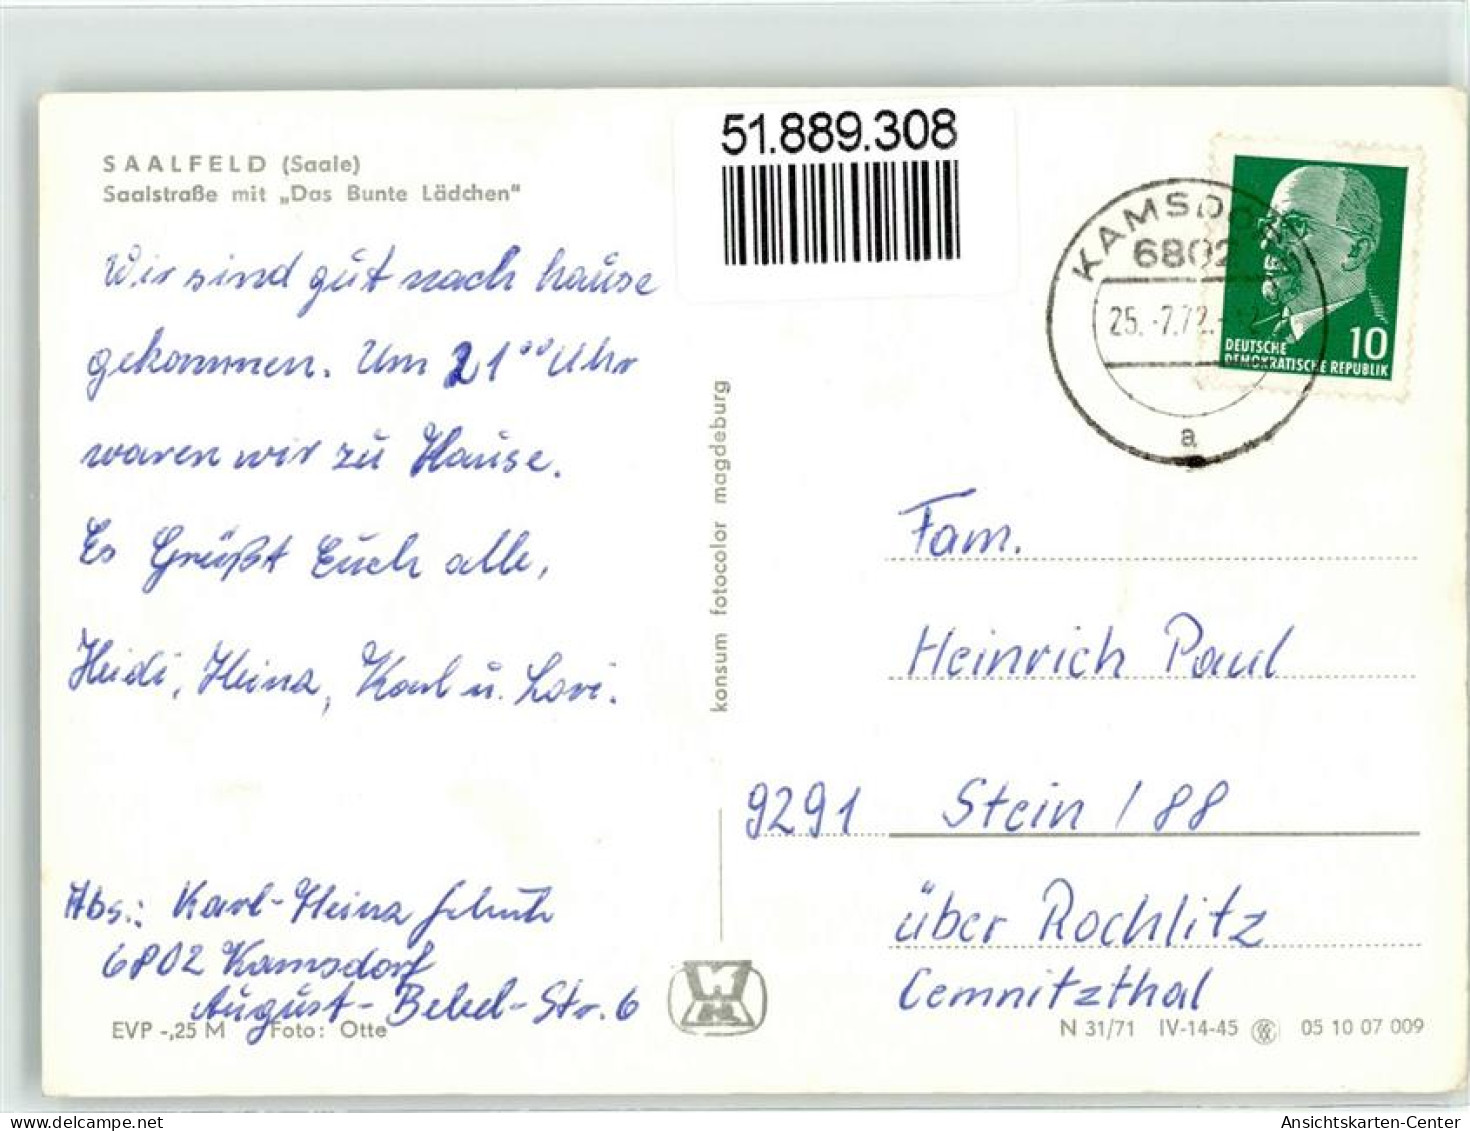 51.889.308
SAALFELD (Saale)
Saalstraße mit „Das Bunte Lädchen"
Wir sind gut nach hause
gekommen. Um 21°° Uhr
waren wir zu Hause.
Es Grüßt Euch alle,
Heidi, Heinz, Karl u. Lori.
Abs.: Karl-Heinz
6802 Kamsdorf
August-Bebel-Str. 6
EVP -,25 M Foto: Otte
konsum fotocolor magdeburg
KAMSDORF
6802
25.-7.72.-
a
10
DEUTSCHE
DEMOKRATISCHE REPUBLIK
Fam.
Heinrich Paul
9291 Stein / 88
über Rochlitz
Cemnitzthal
N 31/71 IV-14-45 05 10 07 009
Ansichtskarten-Center